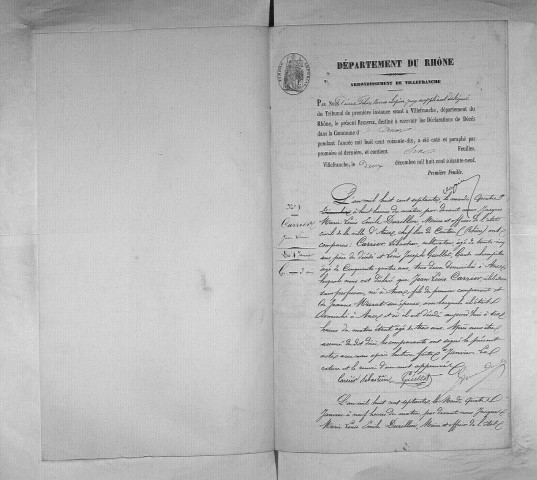 DÉPARTEMENT DU RHÔNE
ARRONDISSEMENT DE VILLEFRANCHE
Par Nous juge suppléant délégué
du Tribunal de première instance séant à Villefranche, département du
Rhône, le présent Registre, destiné à recevoir les Déclarations de Décès
dans la Commune d
pendant l'année mil huit cent soixante-dix, a été coté et paraphé par
première et dernière, et contient Feuilles.
Villefranche, le Deux décembre mil huit cent soixante-neuf.
Première Feuille.
N° 1
Carrier
Jean Louis
L'an mil huit cent septante, le mardi quatre
à huit heures du matin par devant nous Jacques
Marie Louis Emile Durellon, Maire et officier de l'état
civil de la ville d'Anse, chef lieu de Canton (Rhône) ont
comparu Carrier Sébastien, cultivateur âgé de trente cinq
ans père du décédé et Louis Joseph Guillot, Garde champêtre
âgé de Cinquante quatre ans, tous deux domiciliés à Anse
lesquels nous ont déclaré que Jean Louis Carrier, célibataire
sans profession, né à Anse, fils du premier comparant et
de Jeanne son épouse avec laquelle il était
domicilié à Anse et où il est décédé aujourd'hui à
heures du matin étant âgé de trois ans. Après nous être
assuré du dit décès les comparants ont signé le présent
acte avec nous après lecture faite. Janvier
et le renvoi d'un mot approuvés
Carrier Sébastien Guillot
L'an mil huit cent septante, le Mardi quatre
Janvier à neuf heures du matin par devant nous Jacques
Marie Louis Emile Durellon, Maire et officier de l'état